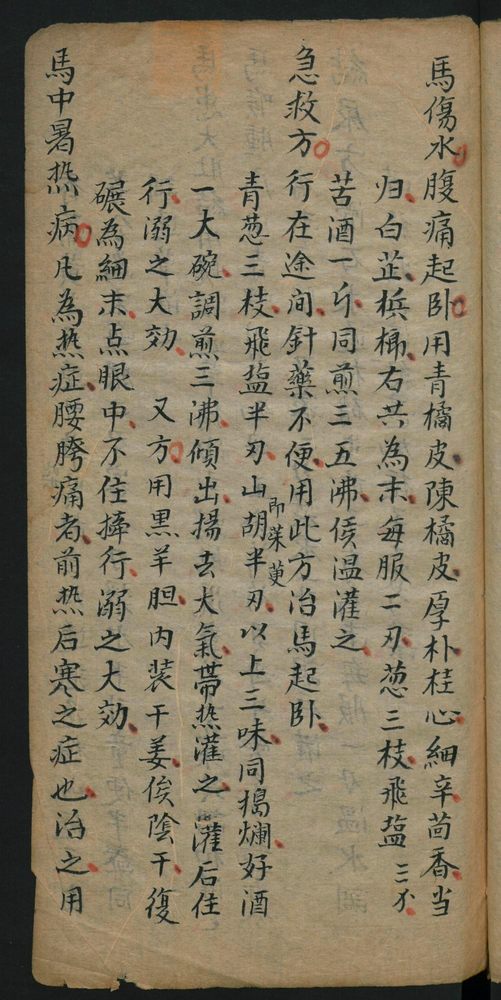 馬傷水腹痛起卧用青橘皮陳橘皮厚朴桂心細辛茴香当
归白芷梹榔右共為末每服二刃葱三枝飛盐三小
苦酒一斤同煎三五沸候温灌之
急救方行在途间針藥不便用此方治馬起卧
青葱三枝飛盐半刃山胡即茱萸半刃以上三味同搗爛好酒
一大碗調煎三沸傾出揚去大氣帶热灌之灌后住
行溺之大効 又方用黒羊胆内装干姜俟陰干復
碾為細末点眼中不住捧行溺之大効
馬中暑热病凡為热症腰胯痛者前热后寒之症也治之用